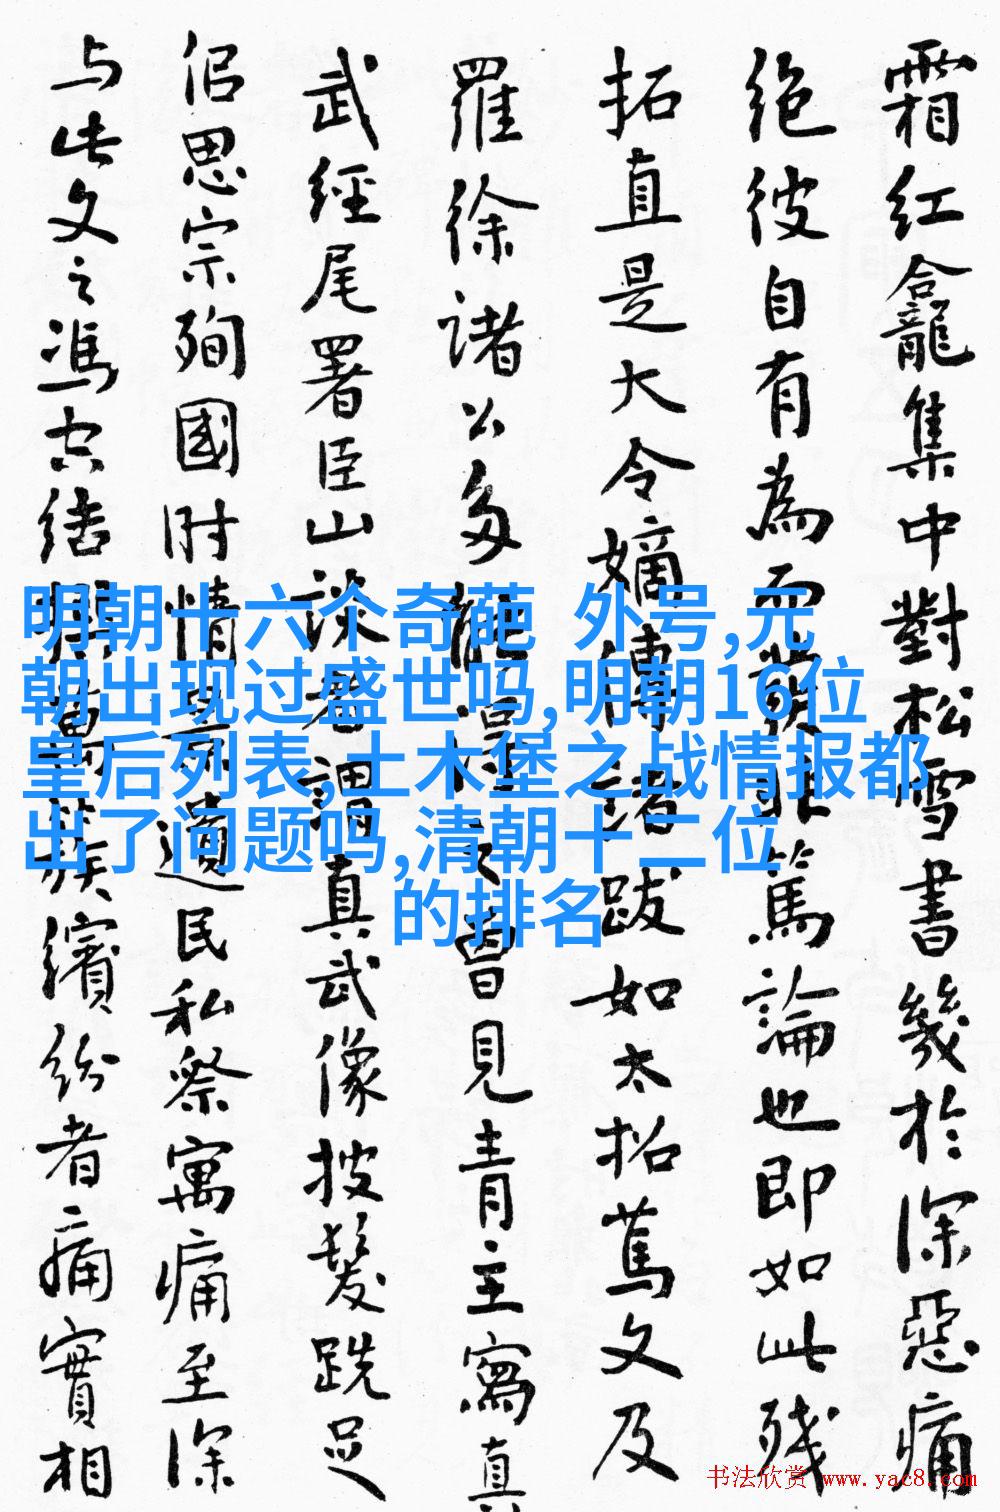 霜红龛集中對松雪書幾於深惡痛
绝彼自有為而
篤論也即如此残
拓直是大令嫡傳諸跋如太拓蔦文及
羅徐諸公多
曹見青主寫真
武經尾署臣山談者謂真武像披髮跣足
侣思宗殉國时情
遺民私察寓痛至深
与此文之馮
結
繽紛者痛實相
明朝十六个奇葩 外号,元
朝出现过盛世吗,明朝16位
皇后列表,土木堡之战情报都
出了问题吗,清朝十二位
的排名
书法欣赏 www.yac8.com